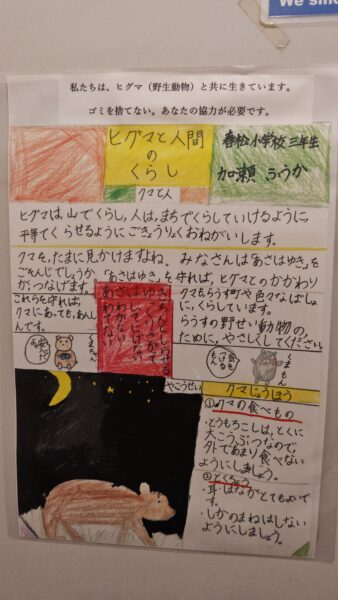 We
私たちは、ヒグマ（野生動物）と共に生きています。
ゴミを捨てない。あなたの協力が必要です。
ヒグマと人間
の
くらし
クマと人
小学校三年生
加瀬
ヒグマは、山でくらし、人は、まちでくらしていけるように、
平等でくらせるようにごきょうりょくおねがいします。
クマを、たまに見かけますよね。みなさんは「あさはゆき」を
ごぞんじでしょうか。「あさはゆき」を守れば、ヒグマとのかかわり
が、つなげます。
これらを守れば、
クマにあっても、あんしん
んです。
クマもらうす町や色々なばしょ
に、くらしています。
らうすの野せい動物の、
ために、やさしくしてください
やこうせい
クマじょうほう
①クマの食べもの
・とうもろこしは、とくに
大こうぶつなので、
外であまり食べない
ようにしましょう。
②とくちょう
・耳・はながとてもよいで
す。
・しかのまねはしない
ようにしましょう。